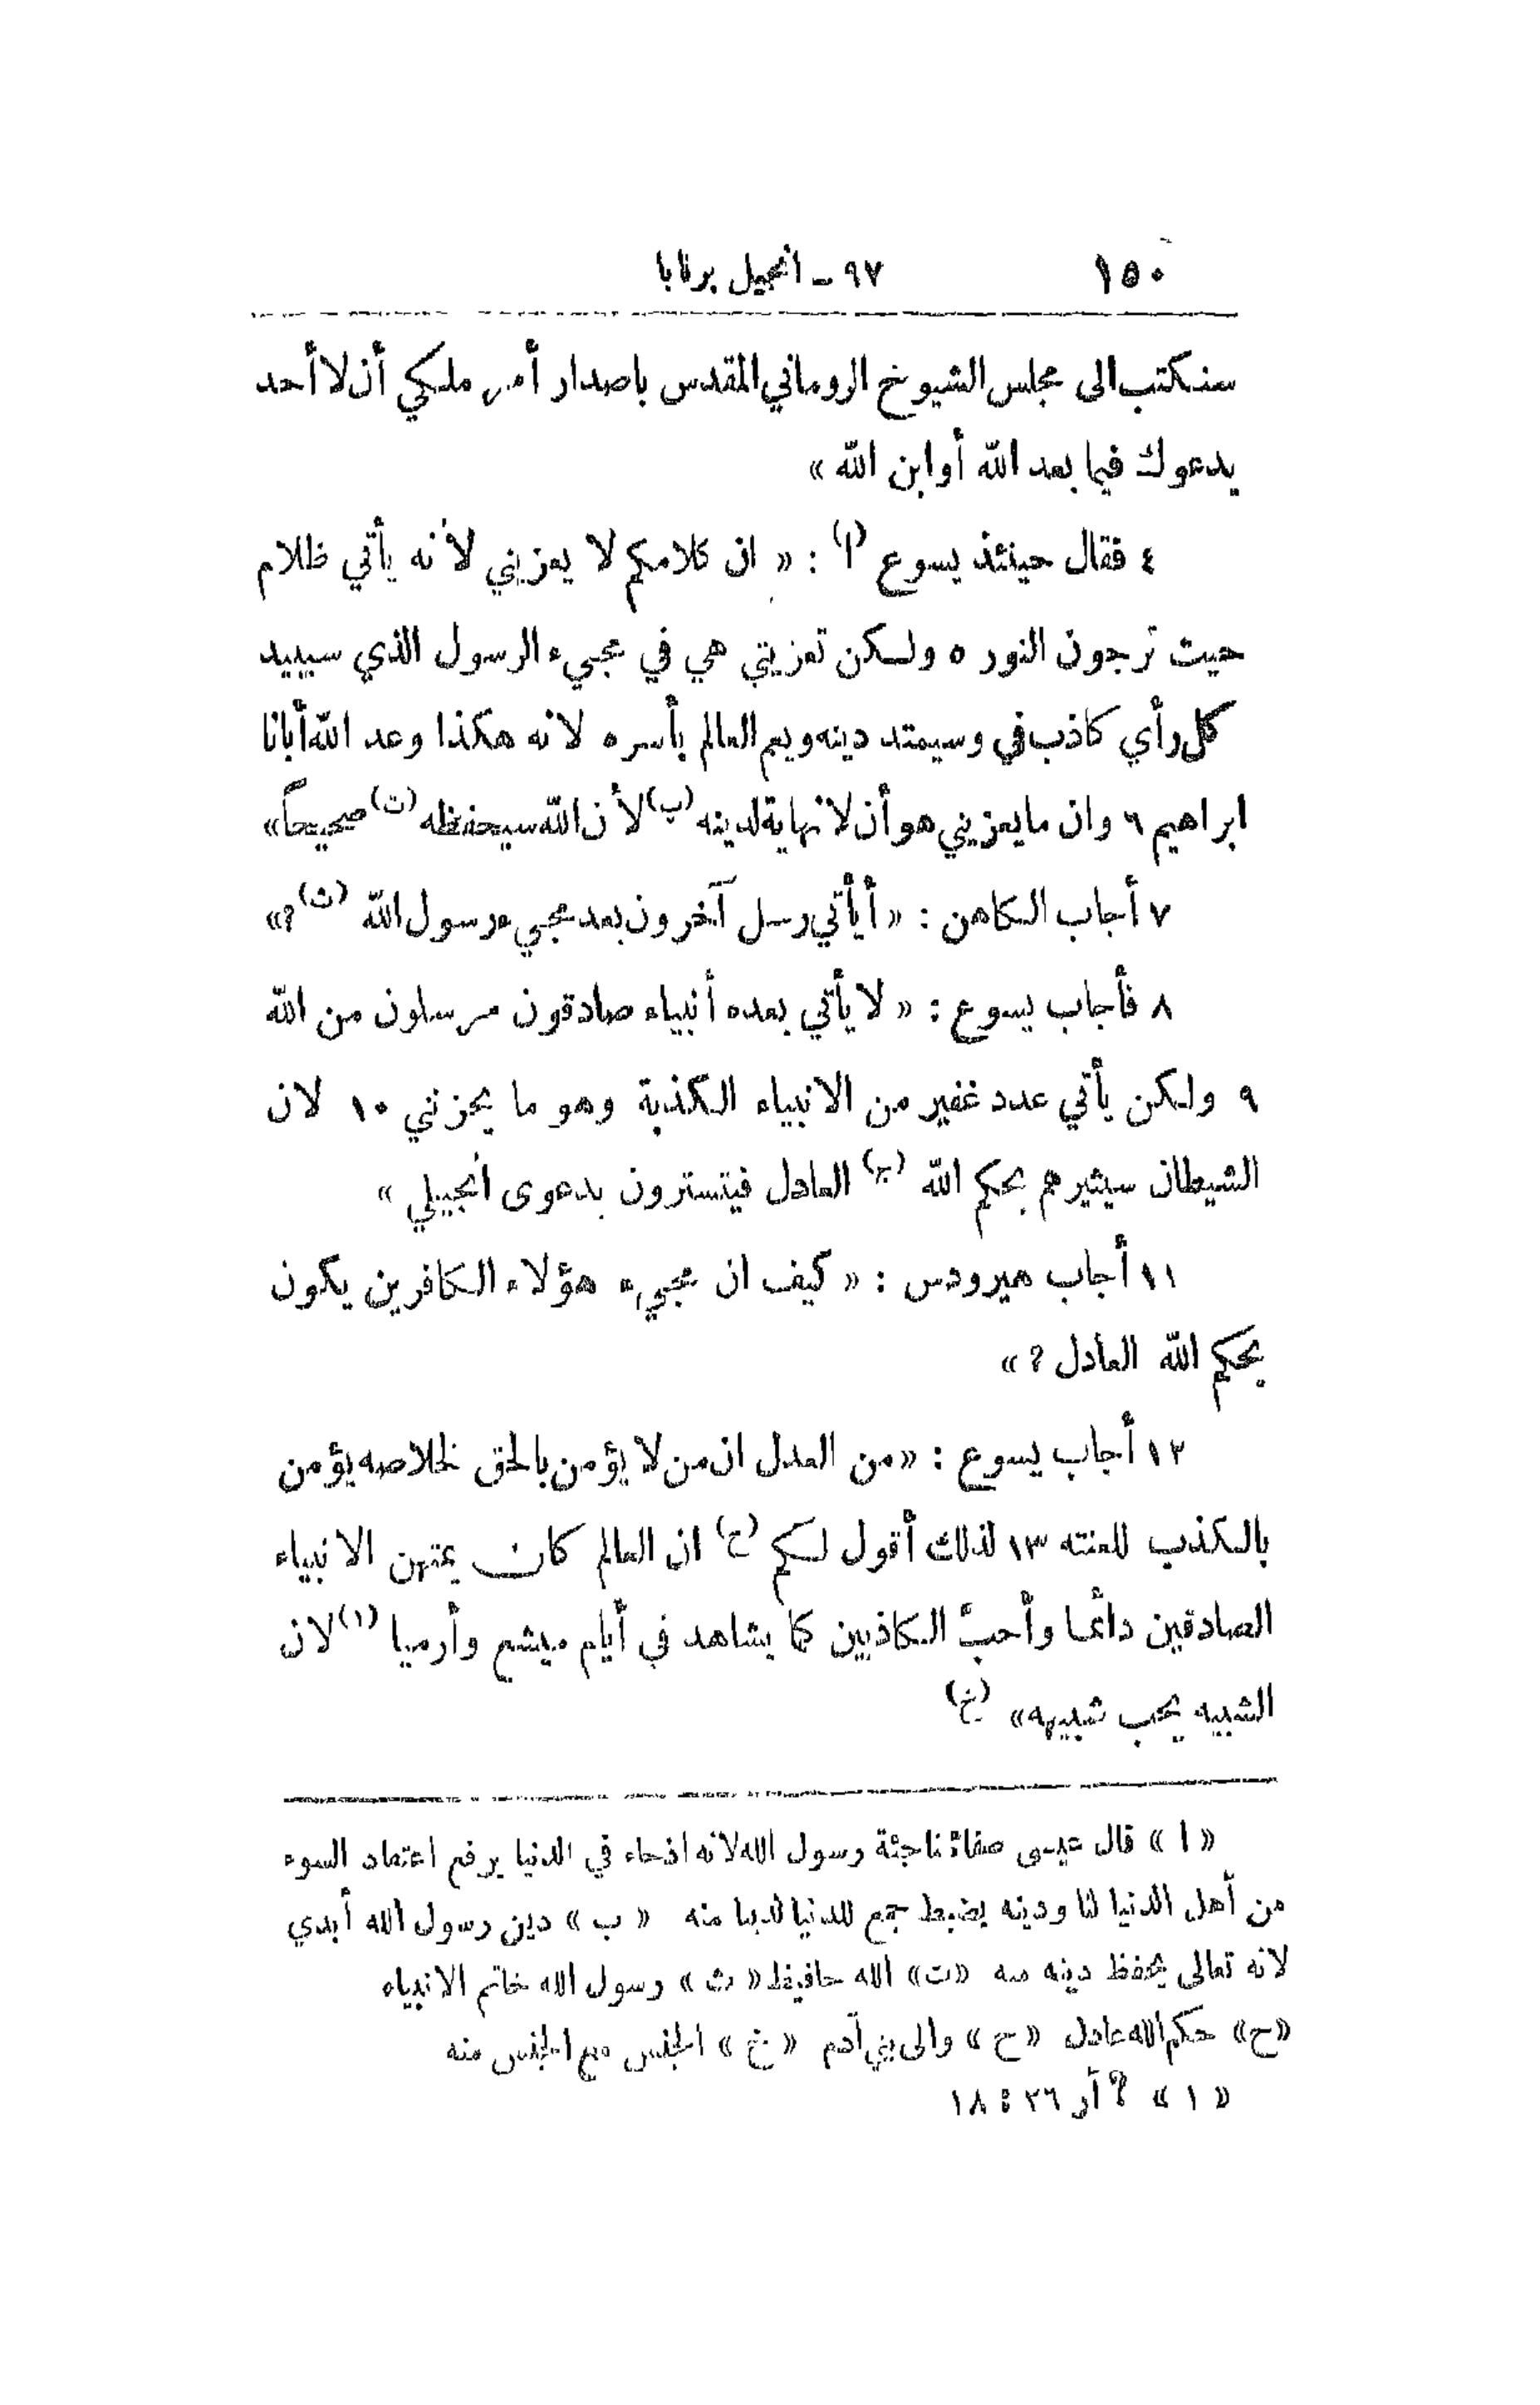 ١٥٠ ٩٧ ـ انجيل برنابا
سنكتب الى مجلس الشيوخ الروماني المقدس باصدار أمر ملكي أن لا أحد
يدعوك فيما بعد الله أو ابن الله »
٤ فقال حينئذ يسوع (ا) : « ان كلامكم لا يعزيني لأنه يأتي ظلام
حيث ترجون النور ٥ ولكن تعزيتي هي في مجيء الرسول الذي سيبيد
كل رأي كاذب في وسيمتد دينه ويعم العالم بأسره لانه هكذا وعد الله أبانا
ابراهيم ٦ وان ما يعزيني هو أن لا نهاية لدينه (ب) لأن الله سيحفظه (ت) صحيحاً »
٧ أجاب الكاهن : « أيأتي رسل آخرون بعد مجيء رسول الله (ث) ? »
٨ فأجاب يسوع : « لا يأتي بعده أنبياء صادقون مرسلون من الله
٩ ولكن يأتي عدد غفير من الانبياء الكذبة وهو ما يحزنني ١٠ لان
الشيطان سيثيرهم بحكم الله (ج) العادل فيتسترون بدعوى انجيلي »
١١ أجاب هيرودس : « كيف ان مجيء هؤلاء الكافرين يكون
بحكم الله العادل ? »
١٢ أجاب يسوع : « من العدل ان من لا يؤمن بالحق لخلاصه يؤمن
بالكذب للعنته ١٣ لذلك أقول لكم (ح) ان العالم كان يمتهن الانبياء
الصادقين دائما وأحبَّ الكاذبين كما يشاهد في أيام ميشع وأرميا (١) لان
الشبيه يحب شبيهه » (خ)
« ا » قال عيسى رسول الله لانه اذ جاء في الدنيا يرفع اعتماد السوء
من أهل الدنيا لنا ودينه يضبط جمع للدنيا منه « ب » دين رسول الله أبدي
لانه تعالى يحفظ دينه منه « ت » الله حافيظ « ث » رسول الله خاتم الانبياء
« ح » حكم الله عادل « ح » والى بني آدم « خ » الجنس مع الجنس منه
« ١ » ? أر ٢٦ : ١٨